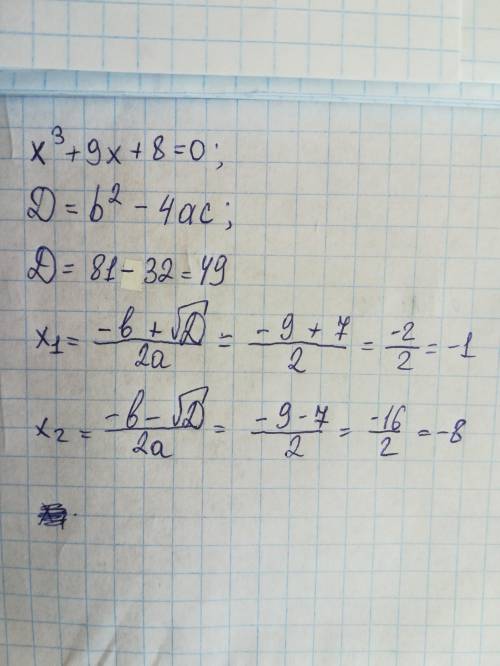 x³ + 9x + 8 = 0;
D = b² - 4ac;
D = 81 - 32 = 49
x₁ = (-b + √D)/2a = (-9 + 7)/2 = -2/2 = -1
x₂ = (-b - √D)/2a = (-9 - 7)/2 = -16/2 = -8